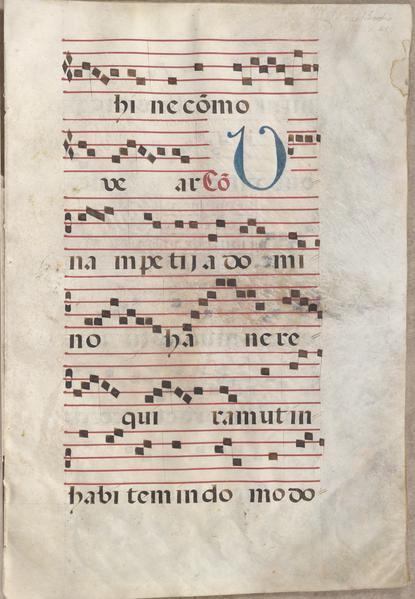 hi ne cōmo
ve ar Cō U
na m petij a do mi
no ha nc re
qui ram ut in
habi tem in do mo do